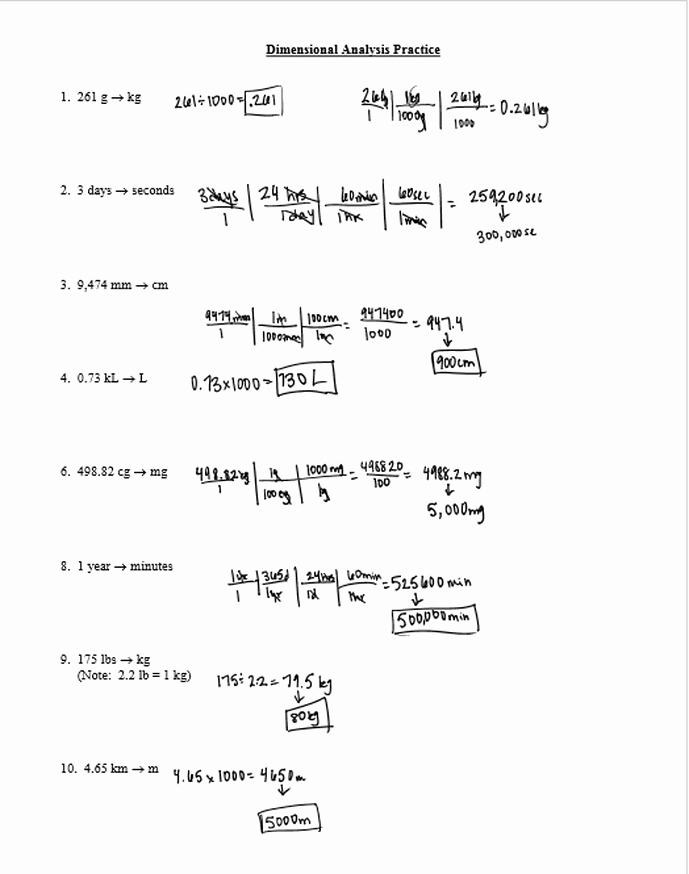 Dimensional Analysis Practice
1. 261 g → kg 261÷1000= .261
261g/1 | 1kg/1000g | 261kg/1000 = 0.261kg
2. 3 days → seconds 3days/1 | 24 hrs/1day | 60min/1hr | 60sec/1min | = 259,200sec
↓
300,000se
3. 9,474 mm → cm
9474mm/1 | 1m/1000mm | 100cm/1m = 947400/1000 = 947.4
↓
900cm
4. 0.73 kL → L 0.73x1000= 730 L
6. 498.82 cg → mg 498.82cg/1 | 1g/100cg | 1000mg/1g = 498820/100 = 4988.2mg
↓
5,000mg
8. 1 year → minutes
1yr/1 | 365d/1yr | 24hrs/1d | 60min/1hr = 525600min
↓
500,000min
9. 175 lbs → kg
(Note: 2.2 lb = 1 kg) 175÷2.2= 79.5 kg
↓
80kg
10. 4.65 km → m 4.65 x 1000= 4650m
↓
5000m